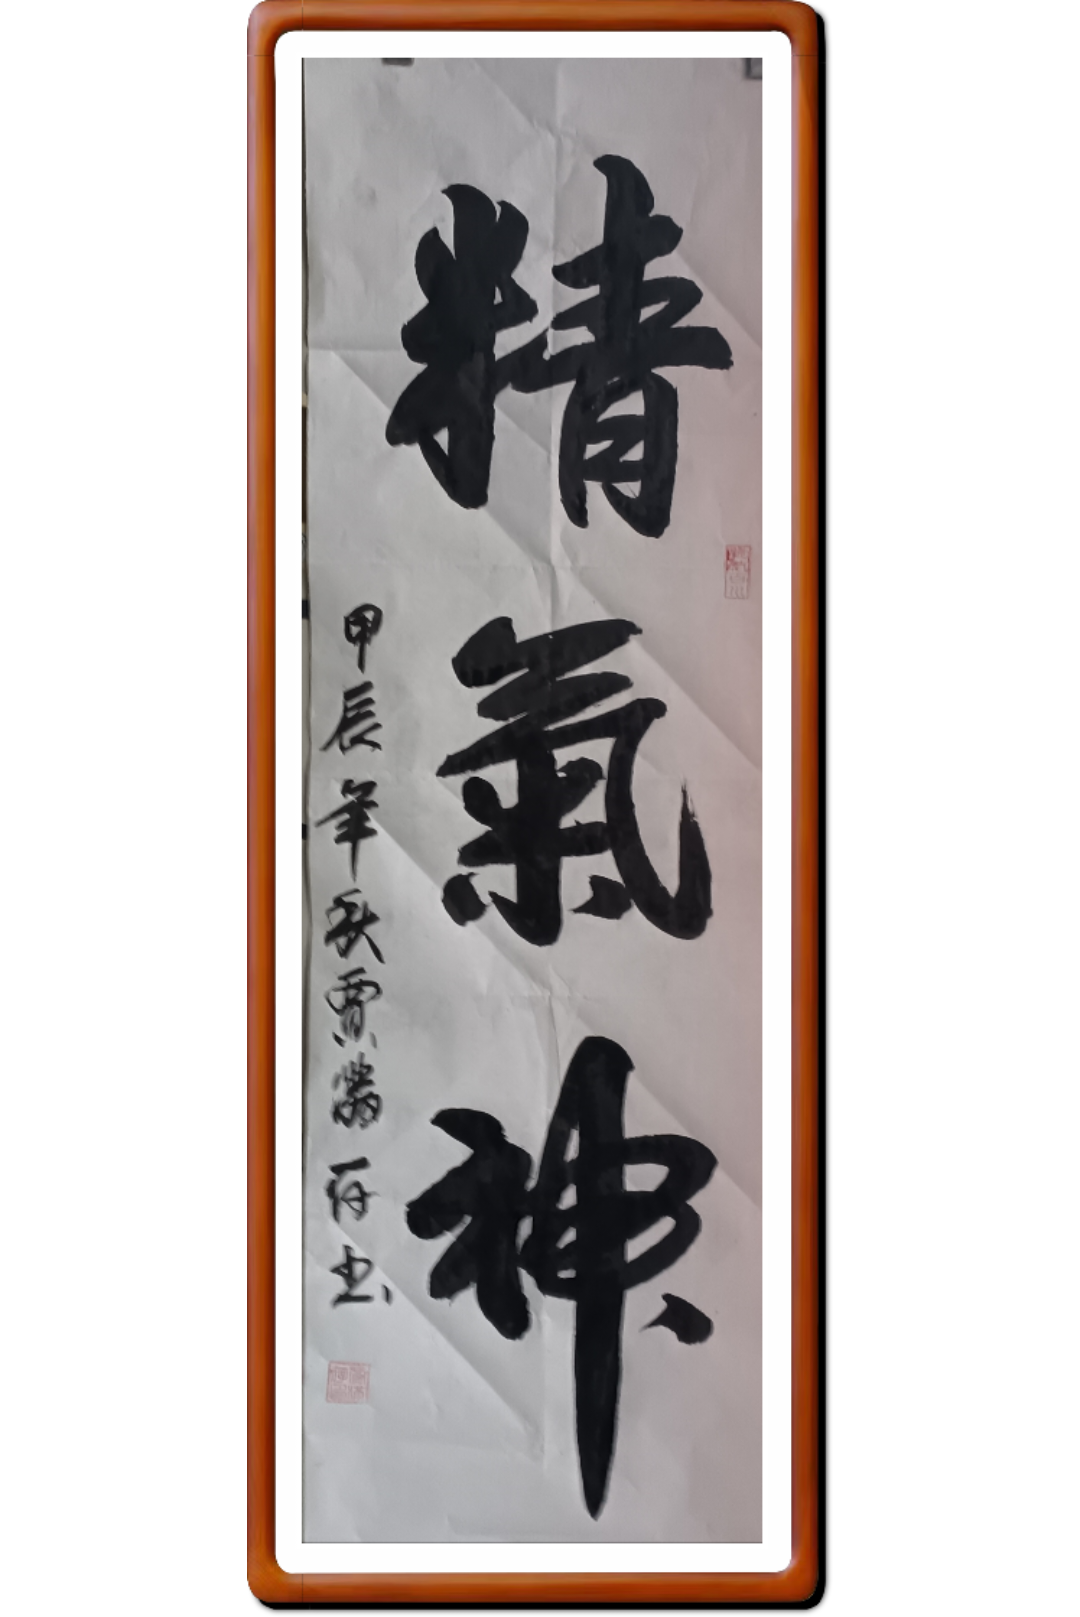 精氣神
甲辰年秋賈
書